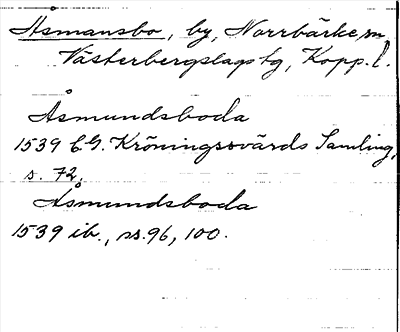 Åsmansbo, by, Norrbärke sn
Västerbergslags tg, Kopp. l.
Åsmundsboda
1539 C.G. Kröningssvärds Samling,
s. 72.
Åsmundsboda
1539 ib., ss. 96, 100.